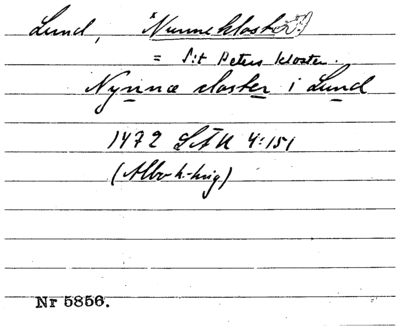 Lund, *Nunneklostr.)
= S:t Peters kloster.
Nynnæ closter i Lund
1472 LÄU 4:151
(Albo h.-hrig)
Nr 5856.